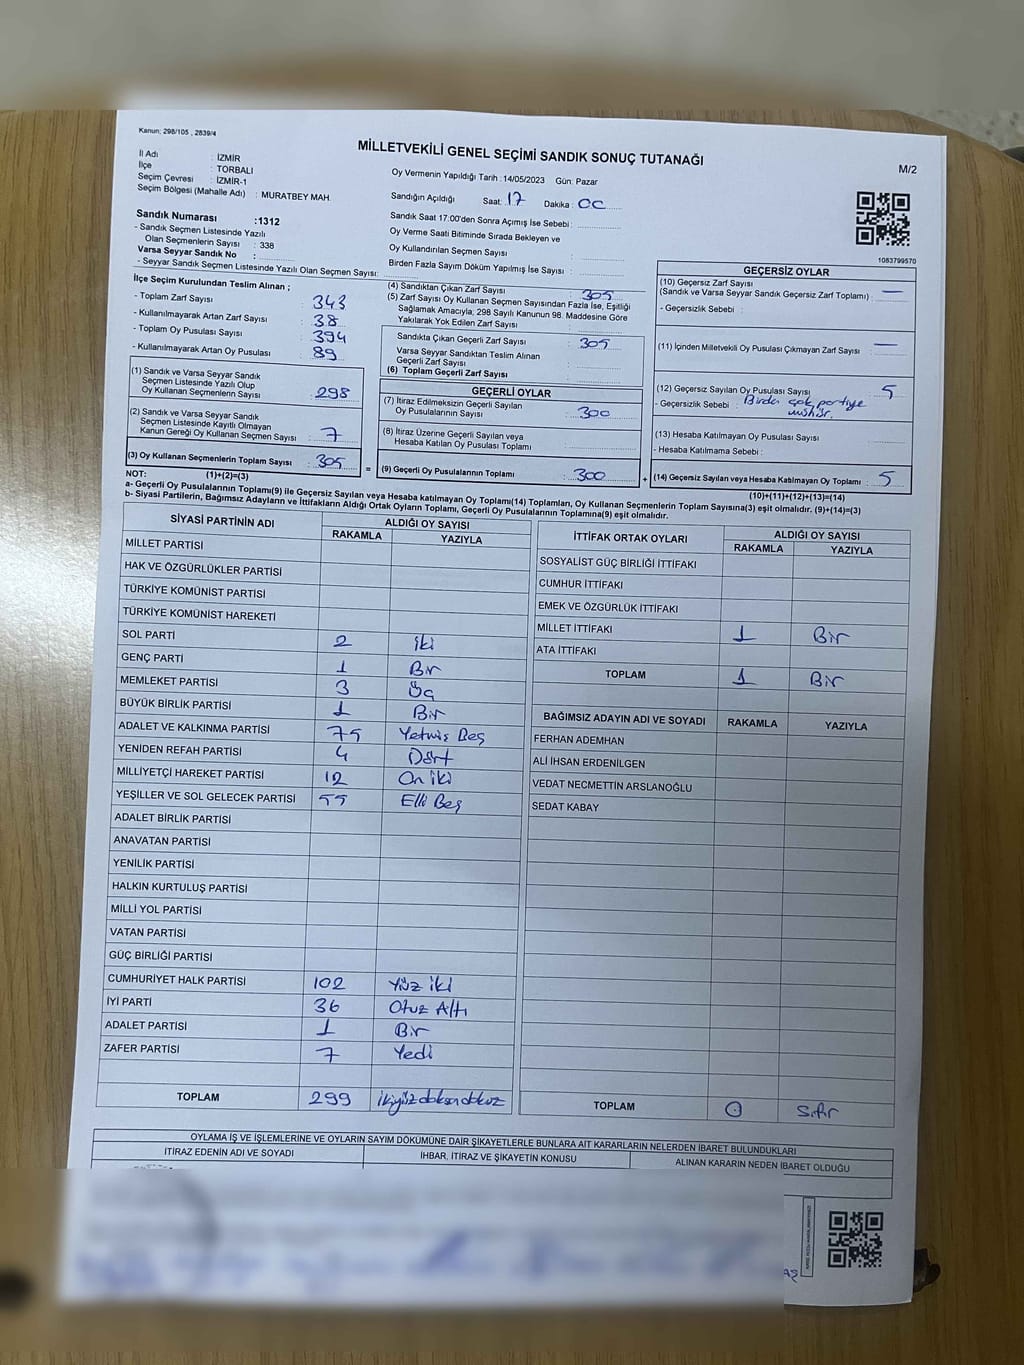 Kanun: 298/105 , 2839/4
MİLLETVEKİLİ GENEL SEÇİMİ SANDIK SONUÇ TUTANAĞI
M/2
İl Adı : İZMİR
İlçe : TORBALI
Seçim Çevresi : İZMİR-1
Seçim Bölgesi (Mahalle Adı) : MURATBEY MAH.
Oy Vermenin Yapıldığı Tarih : 14/05/2023 Gün: Pazar
Sandığın Açıldığı Saat: 17 Dakika : 00
Sandık Saat 17:00'den Sonra Açımış İse Sebebi :
Oy Verme Saati Bitiminde Sırada Bekleyen ve
Oy Kullandırılan Seçmen Sayısı :
Birden Fazla Sayım Döküm Yapılmış İse Sayısı :
Sandık Numarası :1312
- Sandık Seçmen Listesinde Yazılı
Olan Seçmenlerin Sayısı : 338
Varsa Seyyar Sandık No :
- Seyyar Sandık Seçmen Listesinde Yazılı Olan Seçmen Sayısı:
1083799570
İlçe Seçim Kurulundan Teslim Alınan ;
- Toplam Zarf Sayısı : 343
- Kullanılmayarak Artan Zarf Sayısı : 38
- Toplam Oy Pusulası Sayısı : 394
- Kullanılmayarak Artan Oy Pusulası : 89
(1) Sandık ve Varsa Seyyar Sandık
Seçmen Listesinde Yazılı Olup
Oy Kullanan Seçmenlerin Sayısı : 298
(2) Sandık ve Varsa Seyyar Sandık
Seçmen Listesinde Kayıtlı Olmayan
Kanun Gereği Oy Kullanan Seçmen Sayısı : 7
(3) Oy Kullanan Seçmenlerin Toplam Sayısı : 305
(4) Sandıktan Çıkan Zarf Sayısı : 305
(5) Zarf Sayısı Oy Kullanan Seçmen Sayısından Fazla İse, Eşitliği
Sağlamak Amacıyla; 298 Sayılı Kanunun 98. Maddesine Göre
Yakılarak Yok Edilen Zarf Sayısı :
Sandıkta Çıkan Geçerli Zarf Sayısı : 305
Varsa Seyyar Sandıktan Teslim Alınan
Geçerli Zarf Sayısı :
(6) Toplam Geçerli Zarf Sayısı :
GEÇERLİ OYLAR
(7) İtiraz Edilmeksizin Geçerli Sayılan
Oy Pusulalarının Sayısı : 300
(8) İtiraz Üzerine Geçerli Sayılan veya
Hesaba Katılan Oy Pusulası Toplamı :
= (9) Geçerli Oy Pusulalarının Toplamı : 300
GEÇERSİZ OYLAR
(10) Geçersiz Zarf Sayısı
(Sandık ve Varsa Seyyar Sandık Geçersiz Zarf Toplamı) : —
- Geçersizlik Sebebi :
(11) İçinden Milletvekili Oy Pusulası Çıkmayan Zarf Sayısı : —
(12) Geçersiz Sayılan Oy Pusulası Sayısı : 5
- Geçersizlik Sebebi : Birden çok partiye
mühür.
(13) Hesaba Katılmayan Oy Pusulası Sayısı :
- Hesaba Katılmama Sebebi :
+ (14) Geçersiz Sayılan veya Hesaba Katılmayan Oy Toplamı : 5
NOT: (1)+(2)=(3)
(10)+(11)+(12)+(13)=(14)
a- Geçerli Oy Pusulalarının Toplamı(9) ile Geçersiz Sayılan veya Hesaba katılmayan Oy Toplamı(14) Toplamları, Oy Kullanan Seçmenlerin Toplam Sayısına(3) eşit olmalıdır. (9)+(14)=(3)
b- Siyasi Partilerin, Bağımsız Adayların ve İttifakların Aldığı Ortak Oyların Toplamı, Geçerli Oy Pusulalarının Toplamına(9) eşit olmalıdır.
SİYASİ PARTİNİN ADI ALDIĞI OY SAYISI
RAKAMLA YAZIYLA
MİLLET PARTİSİ
HAK VE ÖZGÜRLÜKLER PARTİSİ
TÜRKİYE KOMÜNİST PARTİSİ
TÜRKİYE KOMÜNİST HAREKETİ
SOL PARTİ 2 iki
GENÇ PARTİ 1 Bir
MEMLEKET PARTİSİ 3 Üç
BÜYÜK BİRLİK PARTİSİ 1 Bir
ADALET VE KALKINMA PARTİSİ 75 Yetmiş Beş
YENİDEN REFAH PARTİSİ 4 Dört
MİLLİYETÇİ HAREKET PARTİSİ 12 On iki
YEŞİLLER VE SOL GELECEK PARTİSİ 55 Elli Beş
ADALET BİRLİK PARTİSİ
ANAVATAN PARTİSİ
YENİLİK PARTİSİ
HALKIN KURTULUŞ PARTİSİ
MİLLİ YOL PARTİSİ
VATAN PARTİSİ
GÜÇ BİRLİĞİ PARTİSİ
CUMHURİYET HALK PARTİSİ 102 Yüz iki
İYİ PARTİ 36 Otuz Altı
ADALET PARTİSİ 1 Bir
ZAFER PARTİSİ 7 Yedi
TOPLAM 299 ikiyüzdoksandokuz
İTTİFAK ORTAK OYLARI ALDIĞI OY SAYISI
RAKAMLA YAZIYLA
SOSYALİST GÜÇ BİRLİĞİ İTTİFAKI
CUMHUR İTTİFAKI
EMEK VE ÖZGÜRLÜK İTTİFAKI
MİLLET İTTİFAKI 1 Bir
ATA İTTİFAKI
TOPLAM 1 Bir
BAĞIMSIZ ADAYIN ADI VE SOYADI RAKAMLA YAZIYLA
FERHAN ADEMHAN
ALİ İHSAN ERDENİLGEN
VEDAT NECMETTİN ARSLANOĞLU
SEDAT KABAY
TOPLAM 0 Sıfır
OYLAMA İŞ VE İŞLEMLERİNE VE OYLARIN SAYIM DÖKÜMÜNE DAİR ŞİKAYETLERLE BUNLARA AİT KARARLARIN NELERDEN İBARET BULUNDUKLARI
İTİRAZ EDENİN ADI VE SOYADI İHBAR, İTİRAZ VE ŞİKAYETİN KONUSU ALINAN KARARIN NEDEN İBARET OLDUĞU